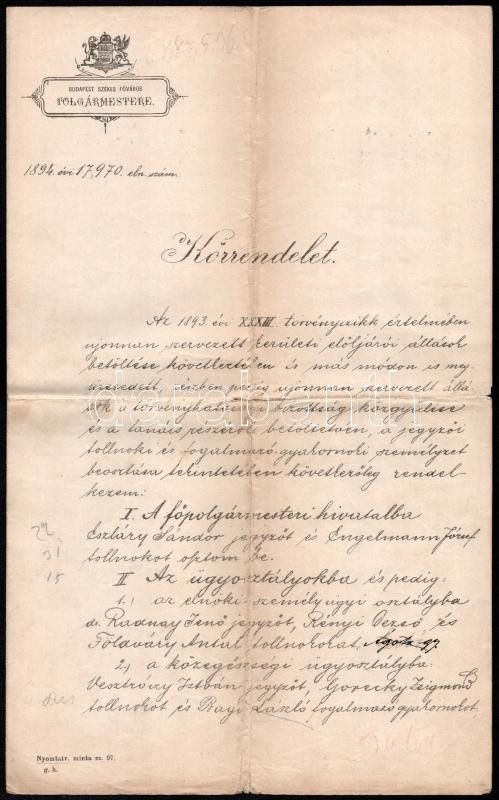 BUDAPEST SZÉKES FŐVÁROS
POLGÁRMESTERE.
1894. évi 17970. eln. szám.
Körrendelet.
Az 1893. évi XXXIII. törvényczikk értelmében
ujonnan szervezett kerületi elöljárói állások
betöltése következtében és más módon is meg
üresedett, részben pedig ujonnan szervezett állá
sok a törvényhatósági bizottság közgyűlése
és a tanács részéről betöltetvén, a jegyzői
tollnoki és fogalmazó-gyakornoki személyzet
beosztása tekintetében következőleg rendel
kezem:
I. A főpolgármesteri hivatalba
Eszláry Sándor jegyzőt és Engelmann József
tollnokot osztom be.
II Az ügyosztályokba és pedig:
1.) az elnöki személyügyi osztályba
dr. Radnay Jenő jegyzőt, Rényi Dezső és
Földváry Antal tollnokokat,
2.) a közegészségi ügyosztályba:
István jegyzőt, Gorecky Zsigmond
tollnokot és Nagy László fogalmazógyakornokot.
22
31
15
Nyomtatv. minta sz. 97.
g. h.
darabanth.com